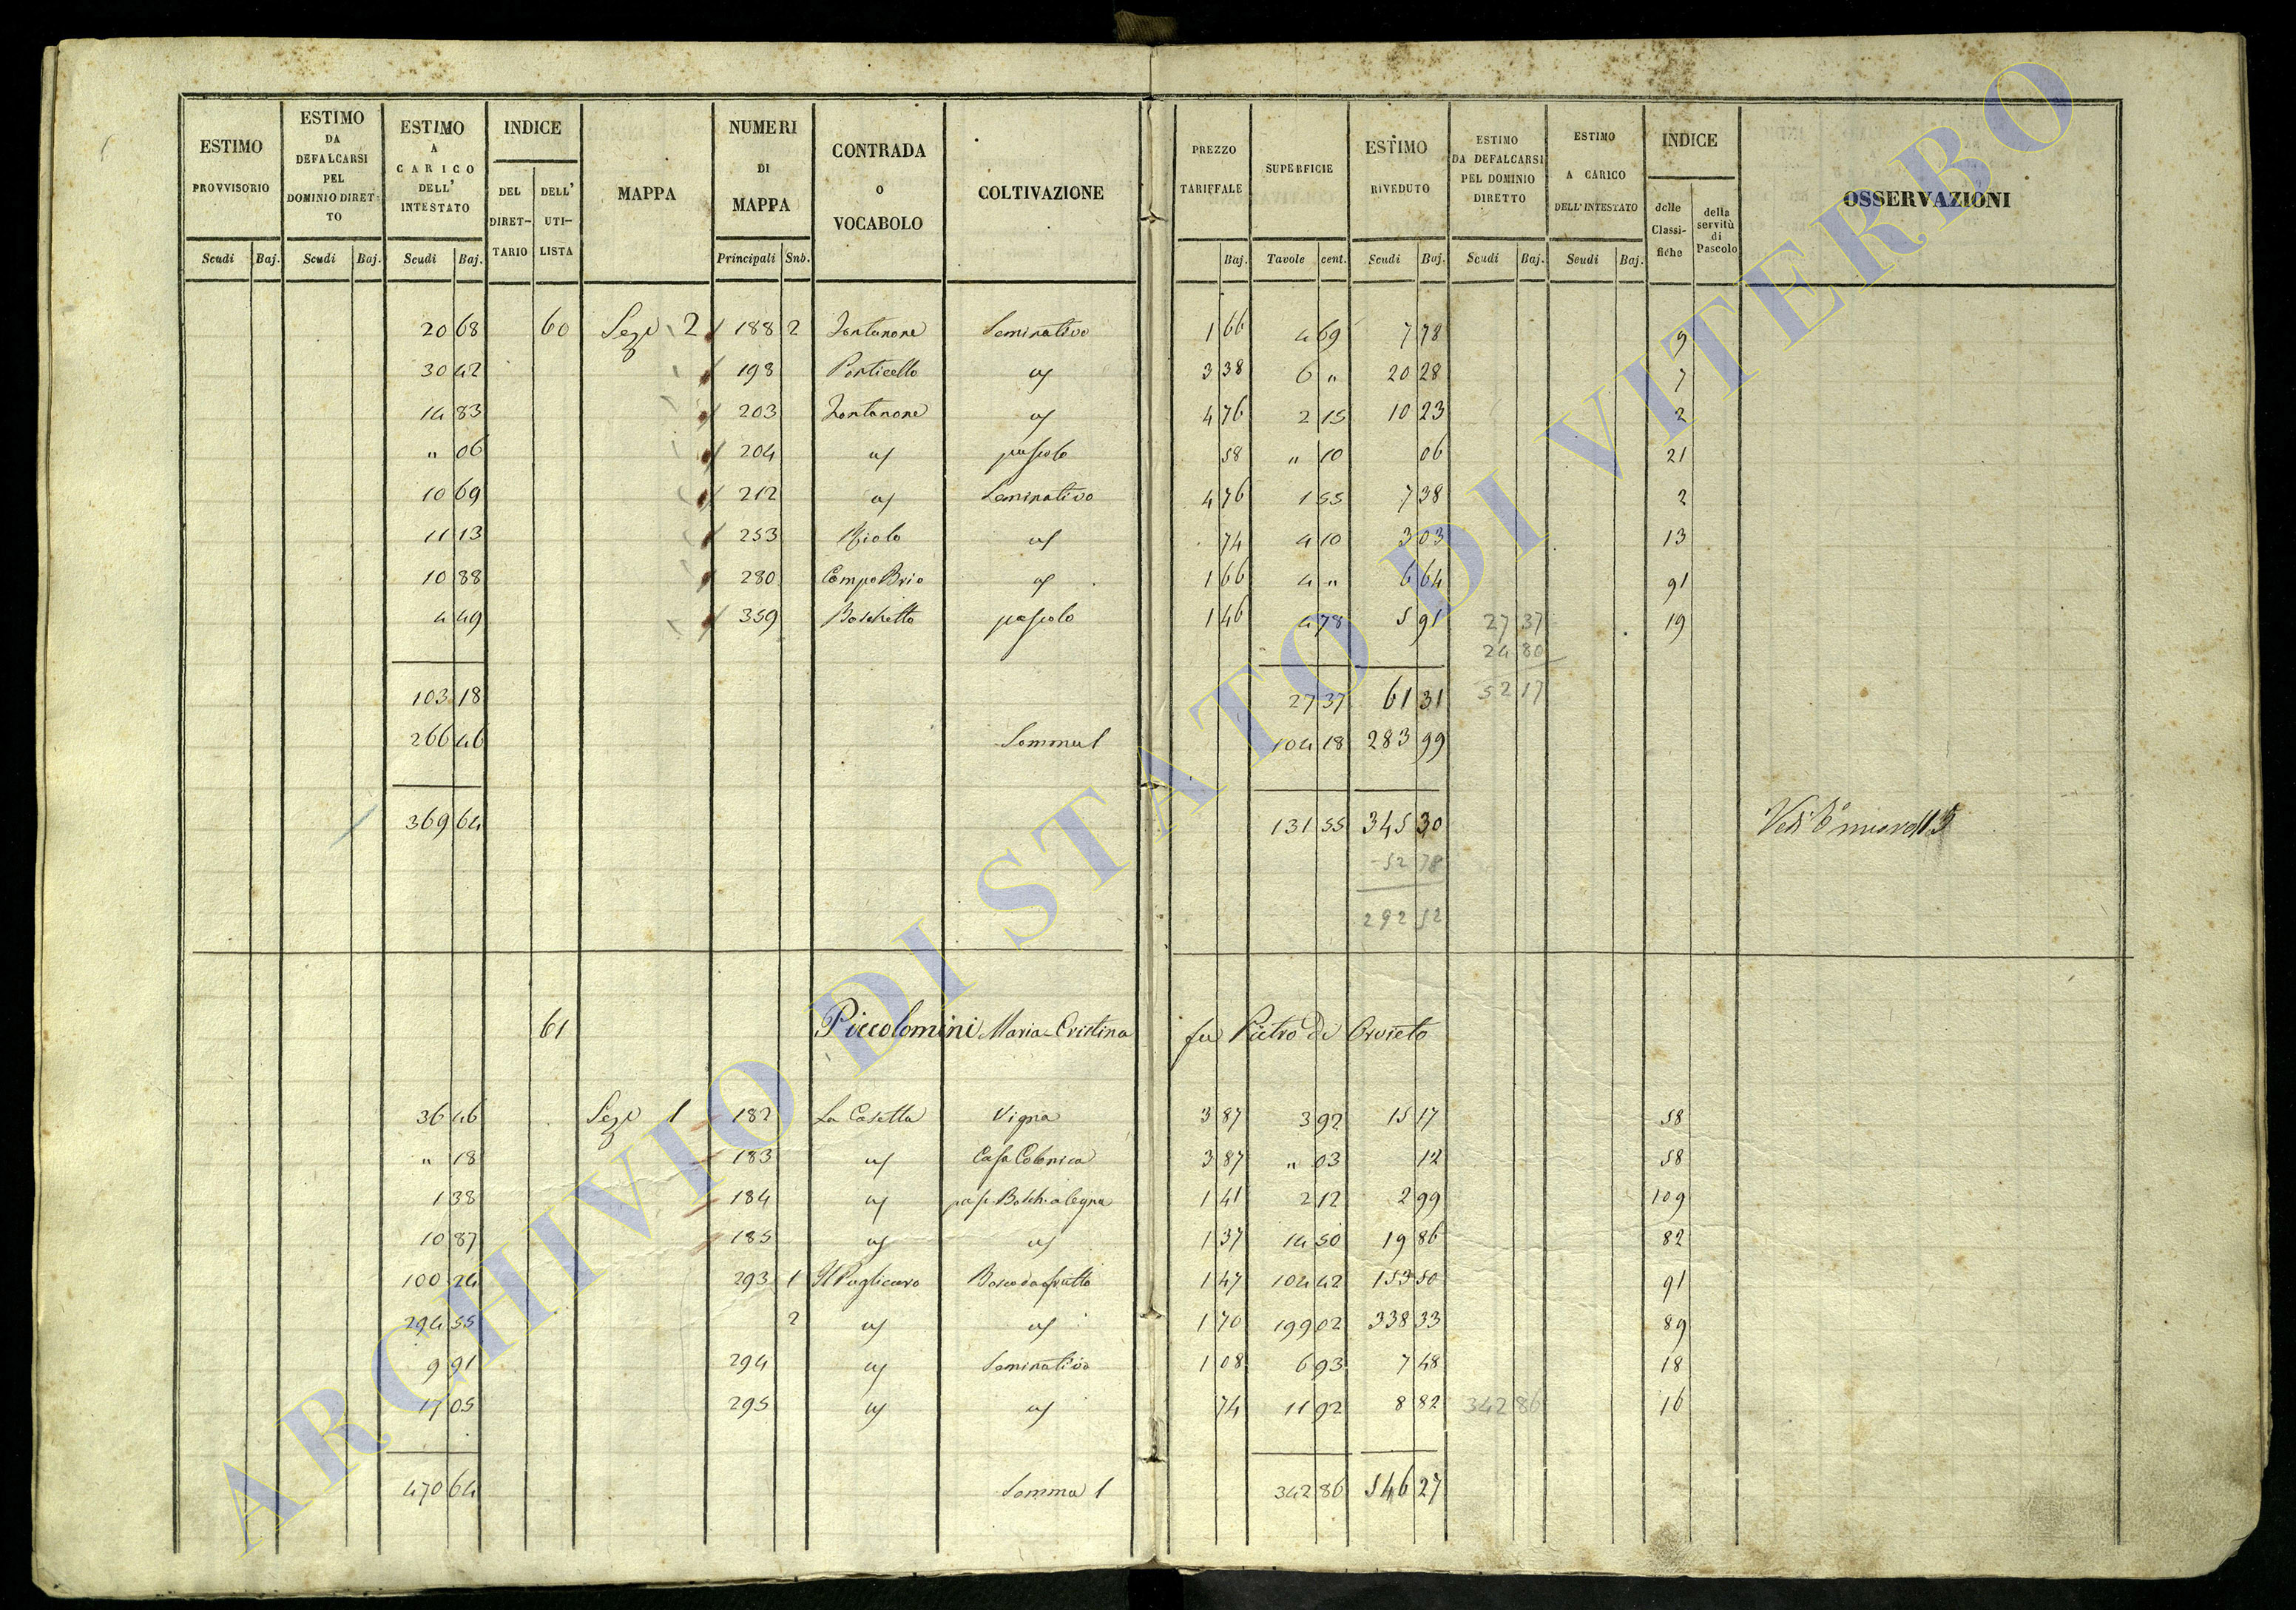 ESTIMO PROVVISORIO
Scudi Baj.
ESTIMO DA DEFALCARSI PEL DOMINIO DIRET-TO
Scudi Baj.
ESTIMO A CARICO DELL' INTESTATO
Scudi Baj.
INDICE
DEL DIRET-TARIO
DELL' UTI-LISTA
MAPPA
NUMERI DI MAPPA
Principali Snb.
CONTRADA O VOCABOLO
COLTIVAZIONE
PREZZO TARIFFALE
Baj.
SUPERFICIE
Tavole cent.
ESTIMO RIVEDUTO
Scudi Baj.
ESTIMO DA DEFALCARSI PEL DOMINIO DIRETTO
Scudi Baj.
ESTIMO A CARICO DELL'INTESTATO
Scudi Baj.
INDICE
delle Classi-fiche
della servitù di Pascolo
OSSERVAZIONI
20 68 60 Sez. 2 188 2 Fontanone Seminativo 1 66 4 69 7 78 9
30 42 198 Porticello 3 38 6 " 20 28 7
14 83 203 Fontanone 4 76 2 15 10 23 2
" 06 204 pascolo 58 " 10 06 21
10 69 212 Seminativo 4 76 1 55 7 38 2
11 13 253 74 4 10 3 03 13
10 88 280 Campo Brio 1 66 4 " 6 64 91
4 49 359 Boschetto pascolo 1 46 4 78 5 91 27 37 19
24 80
103 18 27 37 61 31 52 17
266 46 Somma 1 104 18 283 99
369 64 131 55 345 30 Vedi
52 78
292 52
61 Piccolomini Maria Cristina fu Pietro di Orvieto
36 46 Sez. 1 182 La Casetta Vigna 3 87 3 92 15 17 58
" 18 183 Casa Colonica 3 87 " 03 12 58
1 38 184 1 41 2 12 2 99 109
10 87 185 1 37 14 50 19 86 82
100 24 293 1 Il Paglicaro Bosco da frutto 1 47 104 42 153 50 91
294 55 2 1 70 199 02 338 33 89
9 91 294 Seminativo 1 08 6 93 7 48 18
17 05 295 74 11 92 8 82 342 86 16
470 64 Somma 1 342 86 546 27
ARCHIVIO DI STATO DI VITERBO